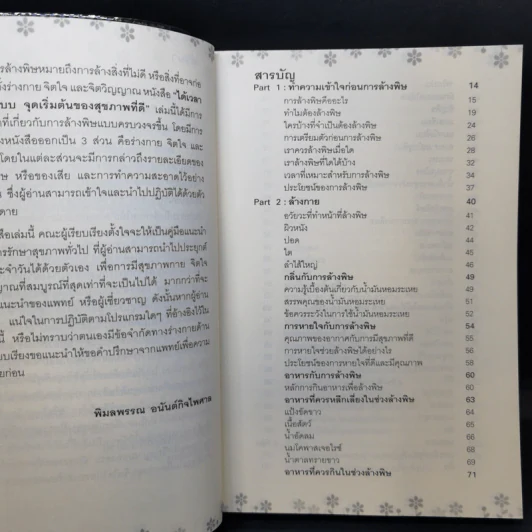 ล้างพิษหมายถึงการล้างสิ่งที่ไม่ดี หรือสิ่งที่อาจก่อ
ร่างกาย จิตใจ และจิตวิญญาณ หนังสือ "ได้เวลา
แบบ จุดเริ่มต้นของสุขภาพที่ดี" เล่มนี้ได้มีการ
ที่เกี่ยวกับการล้างพิษแบบครบวงจรขึ้น โดยมีการ
หนังสือออกเป็น 3 ส่วน คือร่างกาย จิตใจ และ
โดยในแต่ละส่วนจะมีการกล่าวถึงรายละเอียดของ
ษ หรือของเสีย และการทำความสะอาดไว้อย่าง
ซึ่งผู้อ่านสามารถเข้าใจและนำไปปฏิบัติได้ด้วยตัว
ดาย
สือเล่มนี้ คณะผู้เรียบเรียงตั้งใจจะให้เป็นคู่มือแนะนำ
การรักษาสุขภาพทั่วไป ที่ผู้อ่านสามารถนำไปประยุกต์
ะจำวันได้ด้วยตัวเอง เพื่อการมีสุขภาพกาย จิตใจ
ญาณที่สมบูรณ์ที่สุดเท่าที่จะเป็นไปได้ มากกว่าที่จะ
แนะนำของแพทย์ หรือผู้เชี่ยวชาญ ดังนั้นหากผู้อ่าน
แน่ใจในการปฏิบัติตามโปรแกรมใดๆ ที่อ้างอิงไว้ใน
นี้ หรือไม่ทราบว่าตนเองมีข้อจำกัดทางร่างกายด้าน
บเรียงขอแนะนำให้ขอคำปรึกษาจากแพทย์เพื่อความ
ยก่อน
พิมลพรรณ อนันต์กิจไพศาล
สารบัญ
Part 1 : ทำความเข้าใจก่อนการล้างพิษ 14
การล้างพิษคืออะไร 15
ทำไมต้องล้างพิษ 16
ใครบ้างที่จำเป็นต้องล้างพิษ 24
การเตรียมตัวก่อนการล้างพิษ 26
เราควรล้างพิษเมื่อใด 28
เราล้างพิษที่ใดได้บ้าง 32
เวลาที่เหมาะสำหรับการล้างพิษ 34
ประโยชน์ของการล้างพิษ 37
Part 2 : ล้างกาย 40
อวัยวะที่ทำหน้าที่ล้างพิษ 41
ผิวหนัง 42
ปอด 44
ไต 45
ลำไส้ใหญ่ 47
กลิ่นกับการล้างพิษ 49
ความรู้เบื้องต้นเกี่ยวกับน้ำมันหอมระเหย 49
สรรพคุณของน้ำมันหอมระเหย 50
ข้อควรระวังในการใช้น้ำมันหอมระเหย 52
การหายใจกับการล้างพิษ 54
คุณภาพของอากาศกับการมีสุขภาพที่ดี 54
การหายใจช่วยล้างพิษได้อย่างไร 56
ประโยชน์ของการหายใจที่ดีและมีคุณภาพ 58
อาหารกับการล้างพิษ 60
หลักการกินอาหารเพื่อล้างพิษ 60
อาหารที่ควรหลีกเลี่ยงในช่วงล้างพิษ 63
แป้งขัดขาว 64
เนื้อสัตว์ 65
น้ำอัดลม 66
นมโคพาสเจอไรซ์ 68
น้ำตาลทรายขาว 69
อาหารที่ควรกินในช่วงล้างพิษ 71